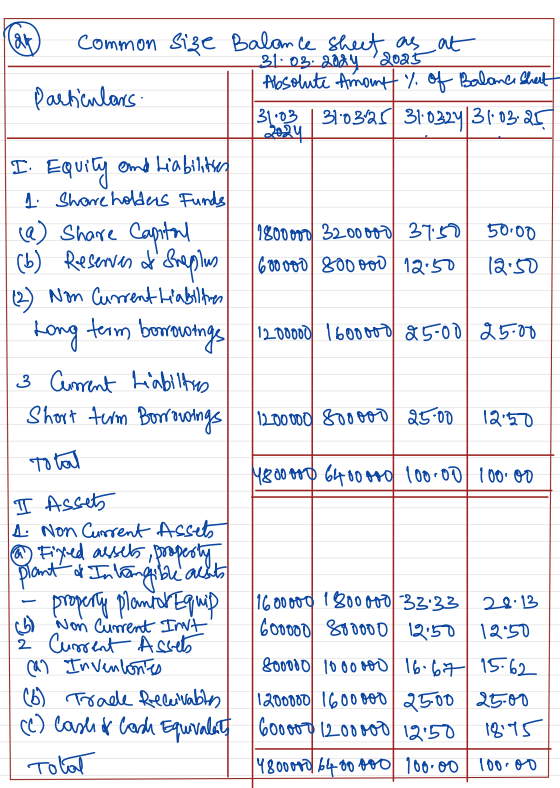 24
Common Size Balance Sheet as at
31.03.2024, 2025
Particulars.
Absolute Amount % of Balance Sheet
31.03 2024 31.03.25 31.0324 31.03.25
I. Equity and Liabilities
1. Shareholders Funds
(a) Share Capital 1800000 3200000 37.50 50.00
(b) Reserves & Surplus 600000 800000 12.50 12.50
(2) Non Current Liabilities
Long term borrowings 1200000 1600000 25.00 25.00
3 Current Liabilities
Short term Borrowings 1200000 800000 25.00 12.50
Total 4800000 6400000 100.00 100.00
II Assets
1. Non Current Assets
(a) Fixed assets, property
plant & Intangible assts
- property plant & Equip 1600000 1800000 33.33 28.13
(b) Non Current Invt 600000 800000 12.50 12.50
2 Current Assets
(a) Inventories 800000 1000000 16.67 15.62
(b) Trade Receivables 1200000 1600000 25.00 25.00
(c) Cash & Cash Equivalents 600000 1200000 12.50 18.75
Total 4800000 6400000 100.00 100.00